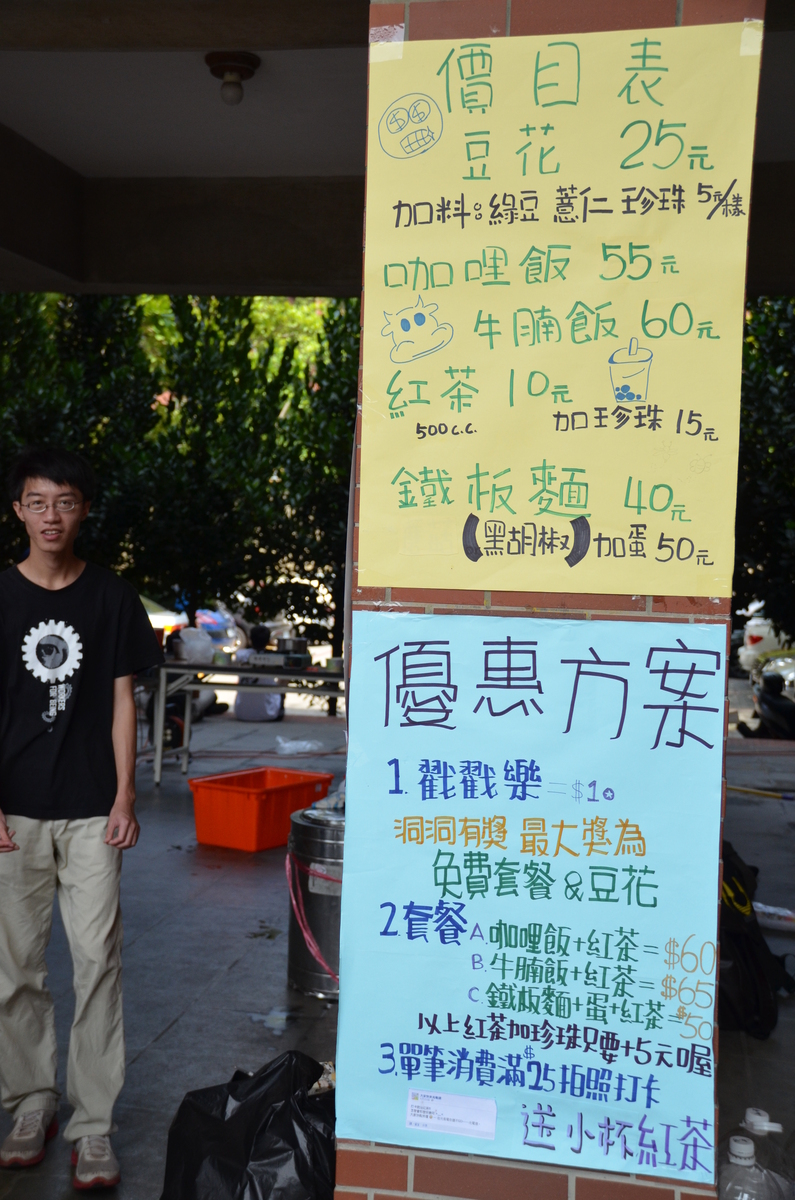 價目表
豆花 25元
加料:綠豆 薏仁 珍珠 5元/樣
咖哩飯 55元
牛腩飯 60元
紅茶 10元
500c.c. 加珍珠 15元
鐵板麵 40元
(黑胡椒) 加蛋 50元
優惠方案
1. 戳戳樂 = $10
洞洞有獎 最大獎為
免費套餐&豆花
2. 套餐 A. 咖哩飯+紅茶= $60
B. 牛腩飯+紅茶= $65
C. 鐵板麵+蛋+紅茶= $50
以上紅茶加珍珠只要+5元喔
3. 單筆消費滿$25拍照打卡
送小杯紅茶